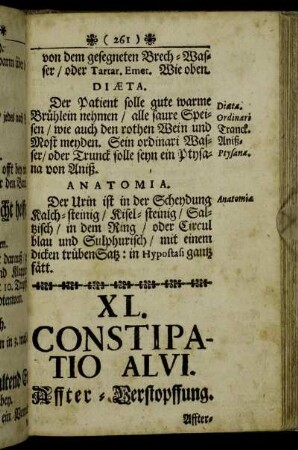 ( 261 )
von dem gesegneten Brech-Was-
ser / oder Tartar. Emet. Wie oben.
DIÆTA.
Der Patient solle gute warme
Brühlein nehmen / alle saure Spei-
sen / wie auch den rothen Wein und
Most meyden. Sein ordinari Was-
ser / oder Trunck solle seyn ein Ptysa-
na von Aniß.
Diæta.
Ordinari
Tranck.
Aniß-
Ptysana.
ANATOMIA.
Der Urin ist in der Scheydung
Kalch-steinig / Kisel-steinig / Sal-
tzisch / in dem Ring / oder Circul
blau und Sulphurisch / mit einem
dicken trüben Satz: in Hypostasi gantz
fätt.
Anatomia
XL.
CONSTIPA-
TIO ALVI.
Affter-Verstopffung.
Affter-